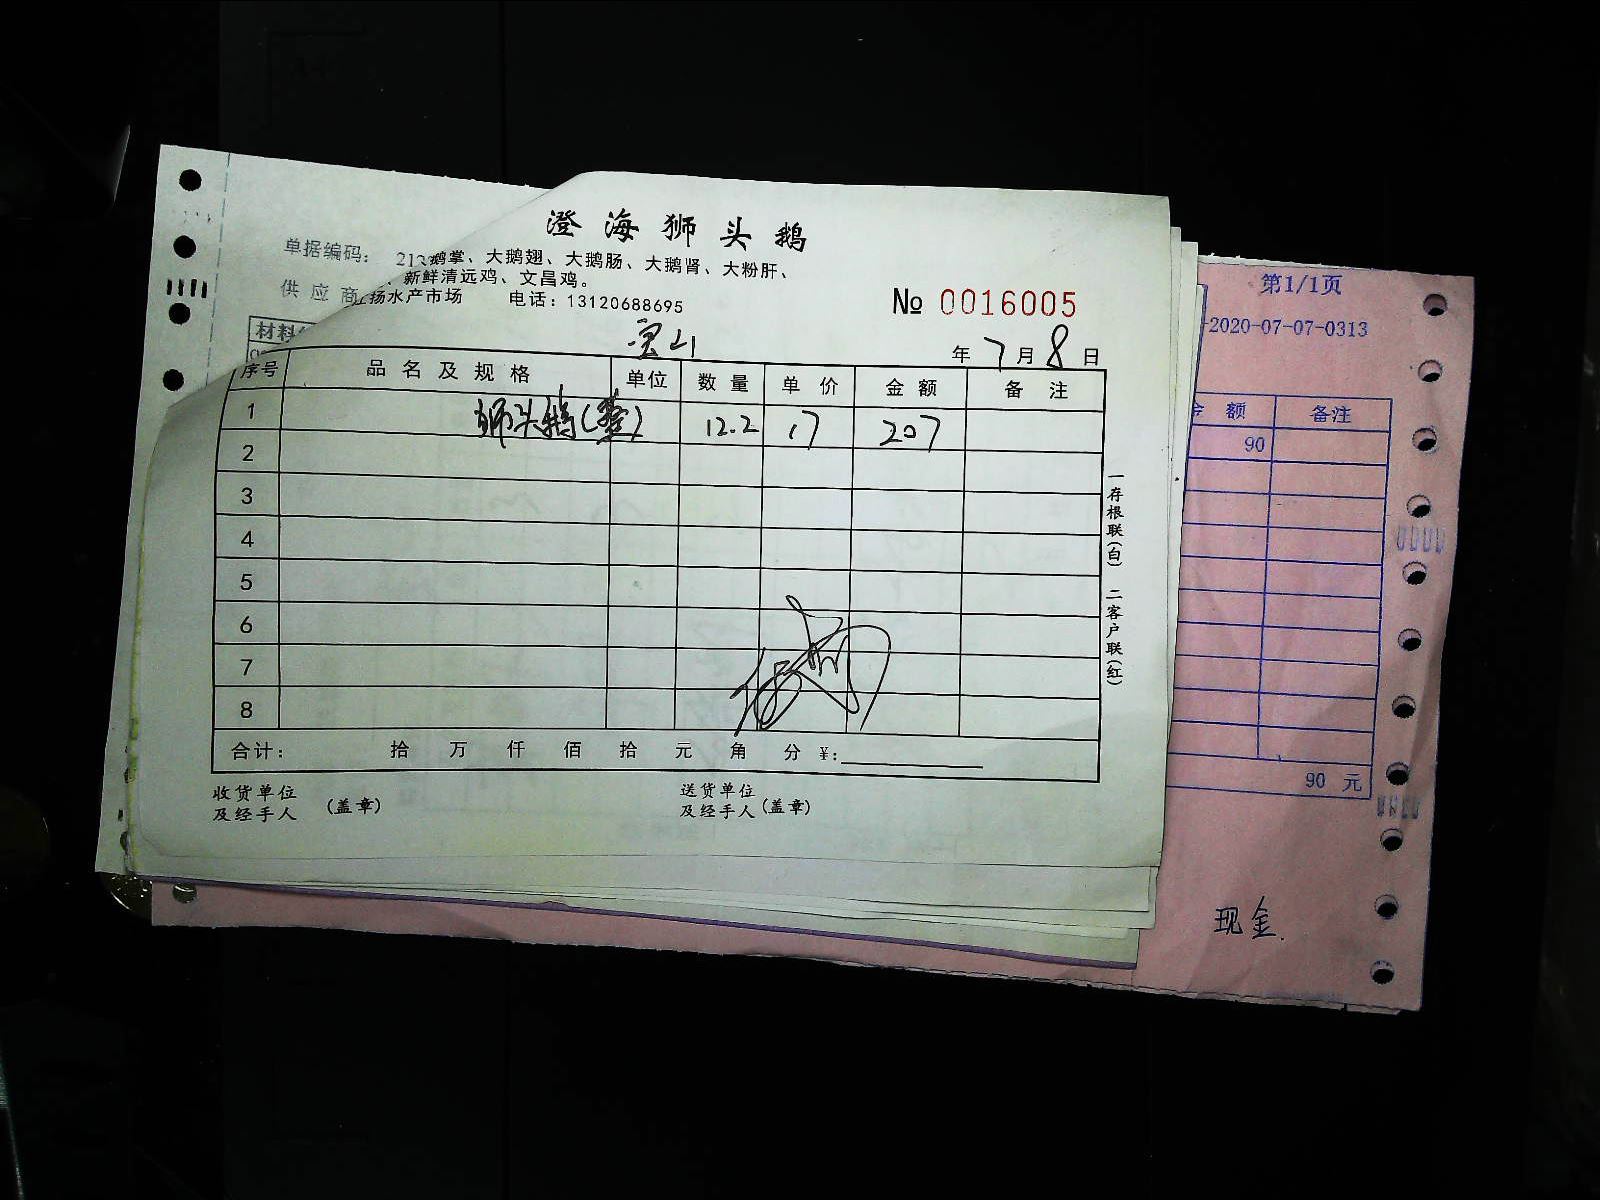 澄海狮头鹅
单据编码： 212
鹅掌、大鹅翅、大鹅肠、大鹅肾、大粉肝、
、新鲜清远鸡、文昌鸡。
供应商
扬水产市场 电话：13120688695
№ 0016005
材料
宝山
年 7 月 8 日
序号 品名及规格 单位 数量 单价 金额 备注
1 狮头鹅(整) 12.2 17 207
2
3
4
5
6
7
8
合计： 拾 万 仟 佰 拾 元 角 分 ¥:
收货单位及经手人 (盖章)
送货单位及经手人 (盖章)
一存根联(白) 二客户联(红)
第1/1页
-2020-07-07-0313
额 备注
90
90 元
现金